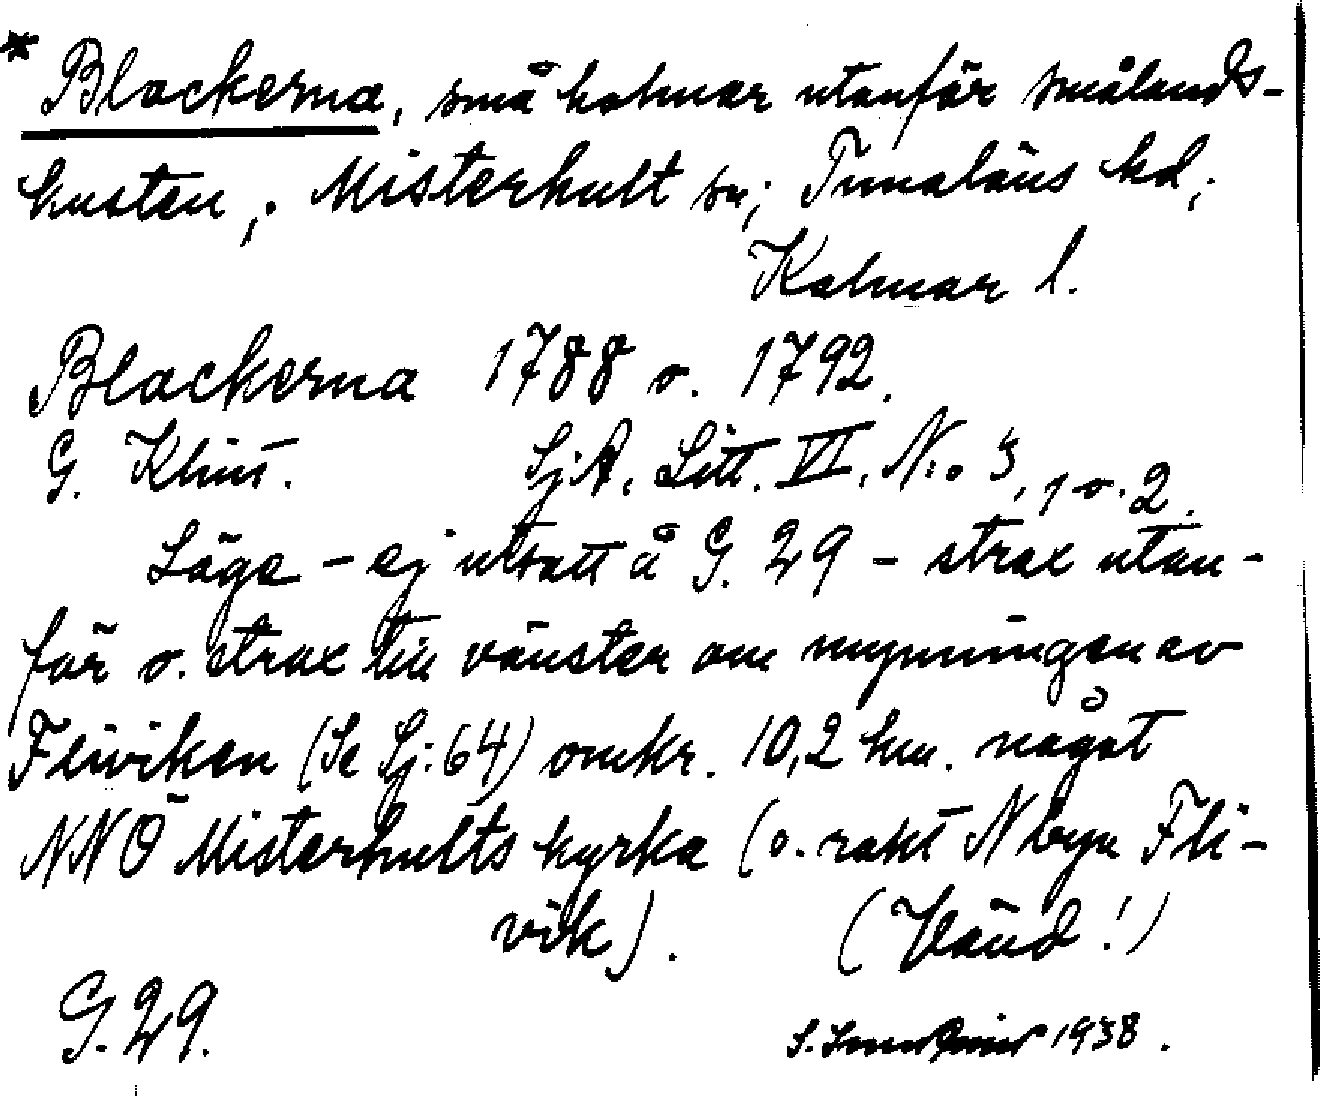 * Blackerna, små holmar utanför smålands-
kusten, Misterhult sn; Tunaläns hd;
Kalmar l.
Blackerna 1788 o. 1792.
G. Klint. SjA. Litt. VI. N:o 3, 1 o. 2.
Läge - ej utsatt å G. 29 - strax utan-
för o. strax till vänster om mynningen av
Fliviken (Se Sj: 64) omkr. 10,2 km. något
NNO Misterhults kyrka (o. rakt N byn Fli-
vik). (Vänd!)
G. 29.
S. 1938.